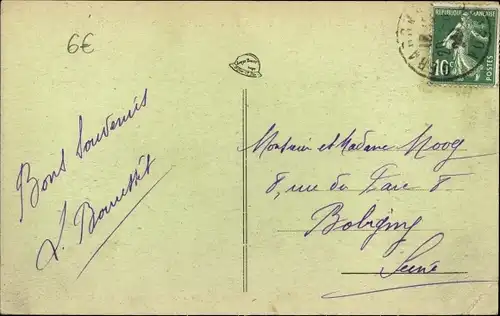 6€
RÉPUBLIQUE FRANÇAISE
10c
POSTES
Bons Souvenirs
Monsieur et Madame Moog
8, rue du Parc 8
Bobigny
Seine